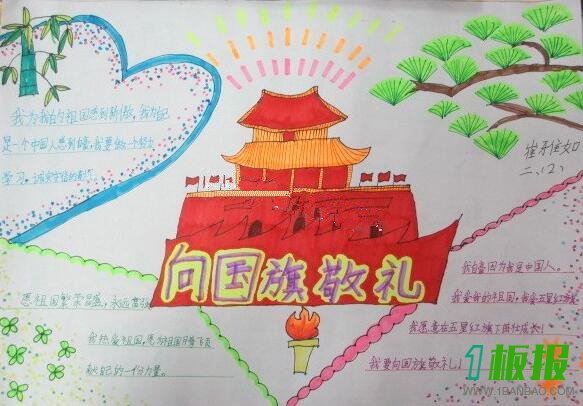 我为我的祖国感到骄傲，我为自己
是一个中国人感到自豪，我要做一个努力
学习，诚实守信的
二、(2)
向国旗敬礼
愿祖国繁荣昌盛，永远富强
我热爱祖国，愿为祖国
献自己的一份力量。
我自豪因为我是中国人。
我爱我的祖国，我爱五星红旗
我愿意在五星红旗下茁壮成长！
我要向国旗敬礼！
1板报
WWW.1BANBAO.COM